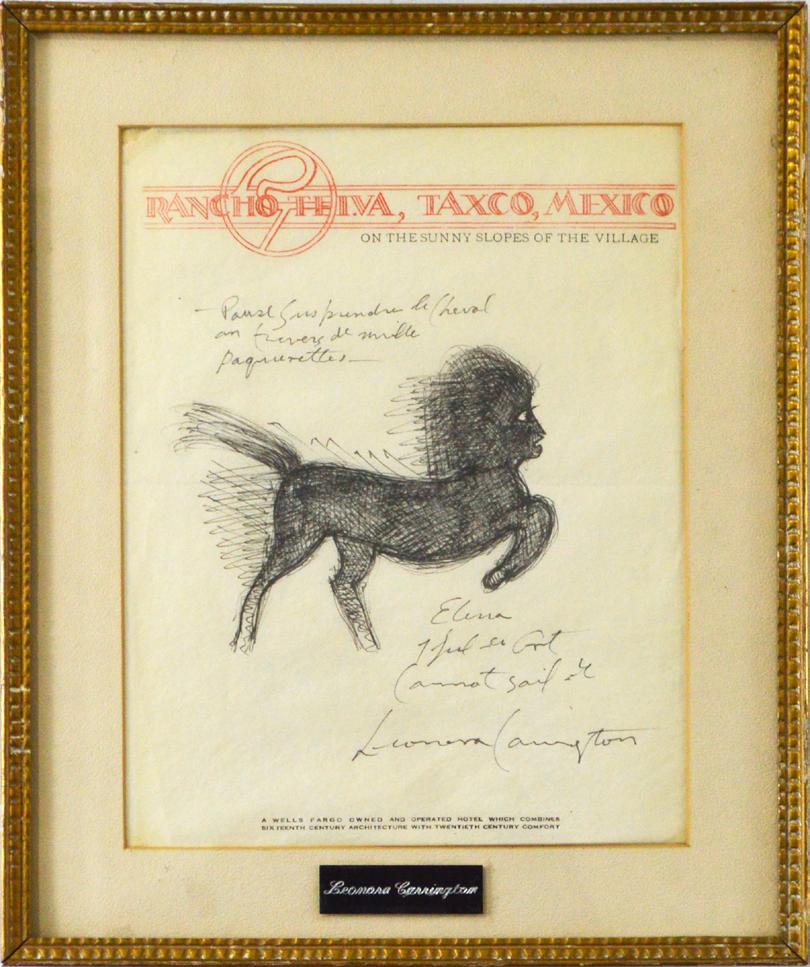 RANCHO TELVA, TAXCO, MEXICO
ON THE SUNNY SLOPES OF THE VILLAGE
le Cheval
au travers de mille
paquerettes—
Elena
Cannot sail
Leonora Carrington
A WELLS FARGO OWNED AND OPERATED HOTEL WHICH COMBINES
SIXTEENTH CENTURY ARCHITECTURE WITH TWENTIETH CENTURY COMFORT
Leonora Carrington